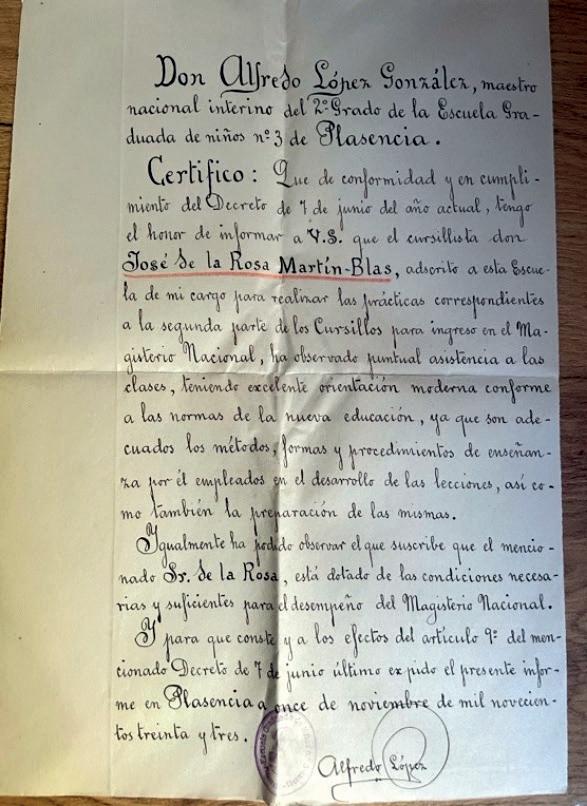 Don Alfredo López González, maestro
nacional interino del 2º Grado de la Escuela Gra-
duada de niños nº 3 de Plasencia.
Certifico: Que de conformidad y en cumpli-
miento del Decreto de 7 de junio del año actual, tengo
el honor de informar a V.S. que el cursillista don
José de la Rosa Martín-Blas, adscrito a esta Escue-
la de mi cargo para realizar las prácticas correspondientes
a la segunda parte de los Cursillos para ingreso en el Ma-
gisterio Nacional, ha observado puntual asistencia a las
clases, teniendo excelente orientación moderna conforme
a las normas de la nueva educación, ya que son ade-
cuados los métodos, formas y procedimientos de enseñan-
za por él empleados en el desarrollo de las lecciones, así co-
mo también la preparación de las mismas.
Igualmente ha podido observar el que suscribe que el mencio-
nado Sr. de la Rosa, está dotado de las condiciones necesa-
rias y suficientes para el desempeño del Magisterio Nacional.
Y para que conste y a los efectos del artículo 9º del men-
cionado Decreto de 7 de junio último expido el presente infor-
me en Plasencia a once de noviembre de mil novecien-
tos treinta y tres.
Alfredo López